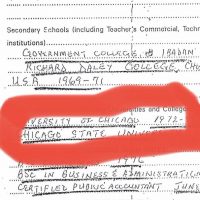 Secondary Schools (including Teacher's Commercial, Techn
institutions).
GOVERNMENT COLLEGE, IBADAN
RICHARD DALEY COLLEGE, CH
USA 1969-71
ities and Colleg
VERSITY OF CHICAGO 1972-
HICAGO STATE UNIVE
1976
BSC IN BUSINESS & ADMINISTRATION
CERTIFIED PUBLIC ACCOUNTANT JUNE